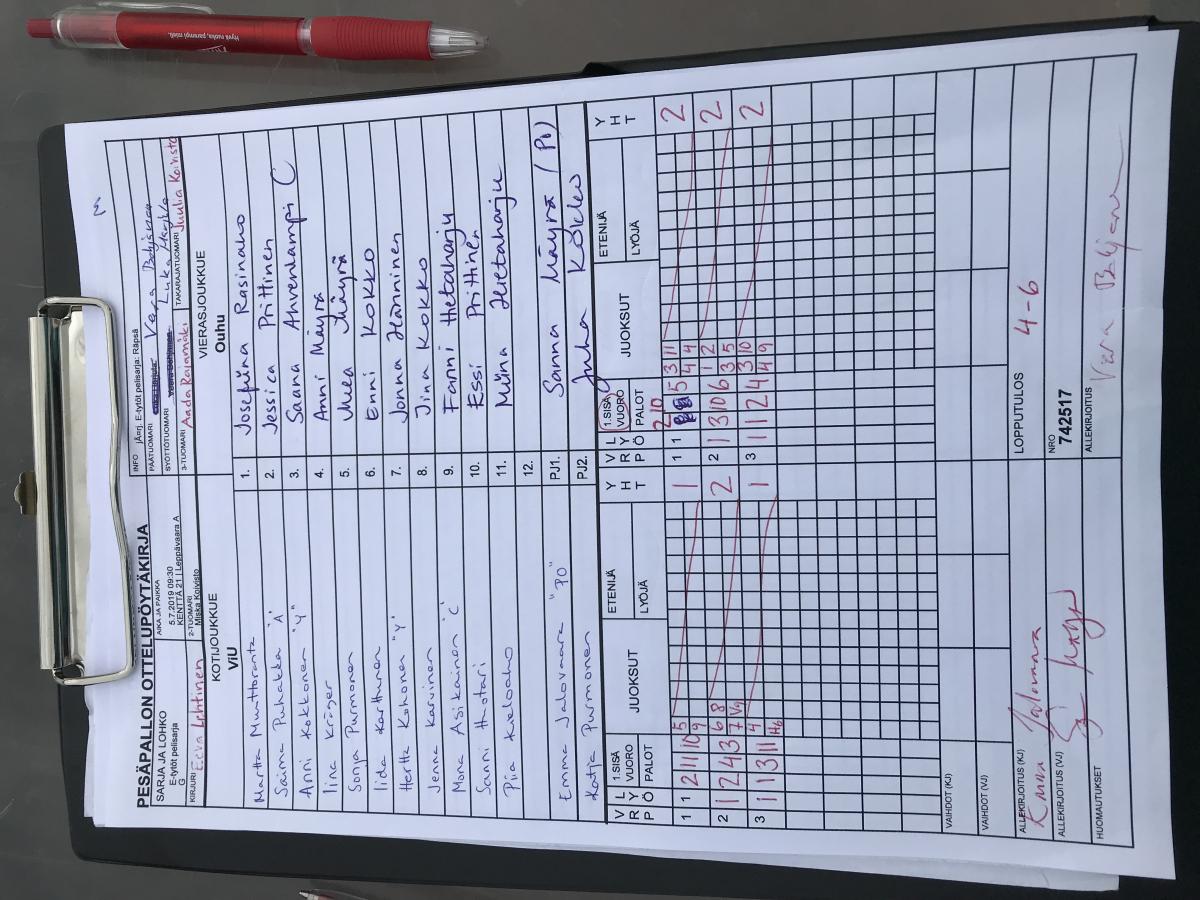 Hyvä ruoka, parempi mieli.
PESÄPALLON OTTELUPÖYTÄKIRJA
SARJA JA LOHKO
E-tytöt pelisarja
G
AIKA JA PAIKKA
5.7.2019 09:30
KENTTÄ 21 | Leppävaara A
INFO jÄrj. E-tytöt pelisarja: Räpsä
PÄÄTUOMARI Vera
SYÖTTÖTUOMARI Luka
KIRJURI Eeva Lehtinen
2-TUOMARI
Miska Koivisto
3-TUOMARI Aada Rajamäki
TAKARAJATUOMARI Juulia Koivisto
KOTIJOUKKUE
ViU
VIERASJOUKKUE
Ouhu
Martta Munttoranta
Saima Puhakka "A"
Anni Kokkonen "Y"
Iina Kröger
Sonja Purmonen
Iida Karttunen
Hertta Kohonen "Y"
Jenna Karvinen
Mona Asikainen "C"
Sanni Huotari
Pia Kueloaho
Emma Jalovaara "PO"
Katja Purmonen
1. Josefiina Rasinaho
2. Jessica Prittinen
3. Saana Ahvenlampi C
4. Anni Mäyrä
5. Mäyrä
6. Enni Kokko
7. Jonna Hänninen
8. Jina Kokko
9. Fanni Hietaharju
10. Essi Prittinen
11. Miina Hietaharju
12.
PJ1. Sanna Mäyrä (PJ)
PJ2. Juha Kokko
V R P
L Y Ö
1.SISÄ VUORO
PALOT
JUOKSUT
ETENIJÄ
LYÖJÄ
Y H T
V R P
L Y Ö
1.SISÄ VUORO
PALOT
JUOKSUT
ETENIJÄ
LYÖJÄ
Y H T
1 1 2 11 10 5 9 1
2 1 2 4 3 6 8 7 Vg 2
3 1 1 3 11 4 Hb 1
1 1 2 10 5 3 11 4 4 2
2 1 3 10 6 1 2 3 5 2
3 1 1 2 4 3 10 4 9 2
VAIHDOT (KJ)
VAIHDOT (VJ)
ALLEKIRJOITUS (KJ)
LOPPUTULOS 4-6
ALLEKIRJOITUS (VJ)
NRO
742517
HUOMAUTUKSET
ALLEKIRJOITUS
Vera